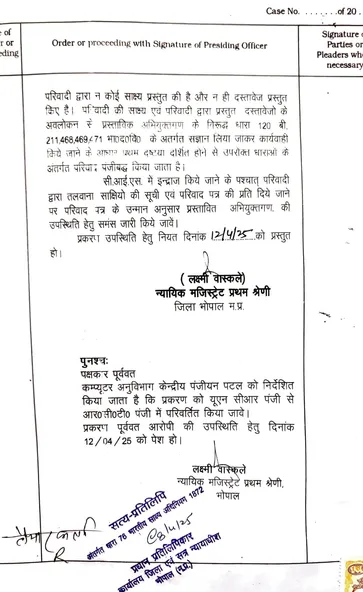 Case No. ........of 20 .
e of
r or
eding
Order or proceeding with Signature of Presiding Officer
Signature o
Parties or
Pleaders whe
necessary
परिवादी द्वारा न कोई साक्ष्य प्रस्तुत की है और न ही दस्तावेज प्रस्तुत
किए है। परिवादी की साक्ष्य एवं परिवादी द्वारा प्रस्तुत दस्तावेजो के
अवलोकन से प्रस्तावित अभियुक्तगण के विरूद्ध धारा 120 बी,
211,468,469,471 भा0द0वि0 के अंतर्गत संज्ञान लिया जाकर कार्यवाही
किये जाने के आधार प्रथम दृष्टया दर्शित होने से उपरोक्त धाराओं के
अंतर्गत परिवाद पंजीबद्ध किया जाता है।
सी.आई.एस. में इन्द्राज किये जाने के पश्चात् परिवादी
द्वारा तलवाना साक्षियो की सूची एवं परिवाद पत्र की प्रति दिये जाने
पर परिवाद पत्र के उन्मान अनुसार प्रस्तावित अभियुक्तगण की
उपस्थिति हेतु समंस जारी किये जावें।
प्रकरण उपस्थिति हेतु नियत दिनांक 12/4/25 को प्रस्तुत
हो।
( लक्ष्मी वास्कले)
न्यायिक मजिस्ट्रेट प्रथम श्रेणी
जिला भोपाल म.प्र.
पुनश्चः
पक्षकार पूर्ववत
कम्प्यूटर अनुविभाग केन्द्रीय पंजीयन पटल को निर्देशित
किया जाता है कि प्रकरण को यूएन सीआर पंजी से
आर0सी0टी0 पंजी में परिवर्तित किया जावे।
प्रकरण पूर्ववत आरोपी की उपस्थिति हेतु दिनांक
12/04/25 को पेश हो।
लक्ष्मी वास्कले
न्यायिक मजिस्ट्रेट प्रथम श्रेणी,
भोपाल
सत्य-प्रतिलिपि
अंतर्गत धारा 76 भारतीय साक्ष्य अधिनियम 1872
8/4/25
प्रधान प्रतिलिपिकार
कार्यालय जिला एवं सत्र न्यायाधीश
भोपाल (म.प्र.)